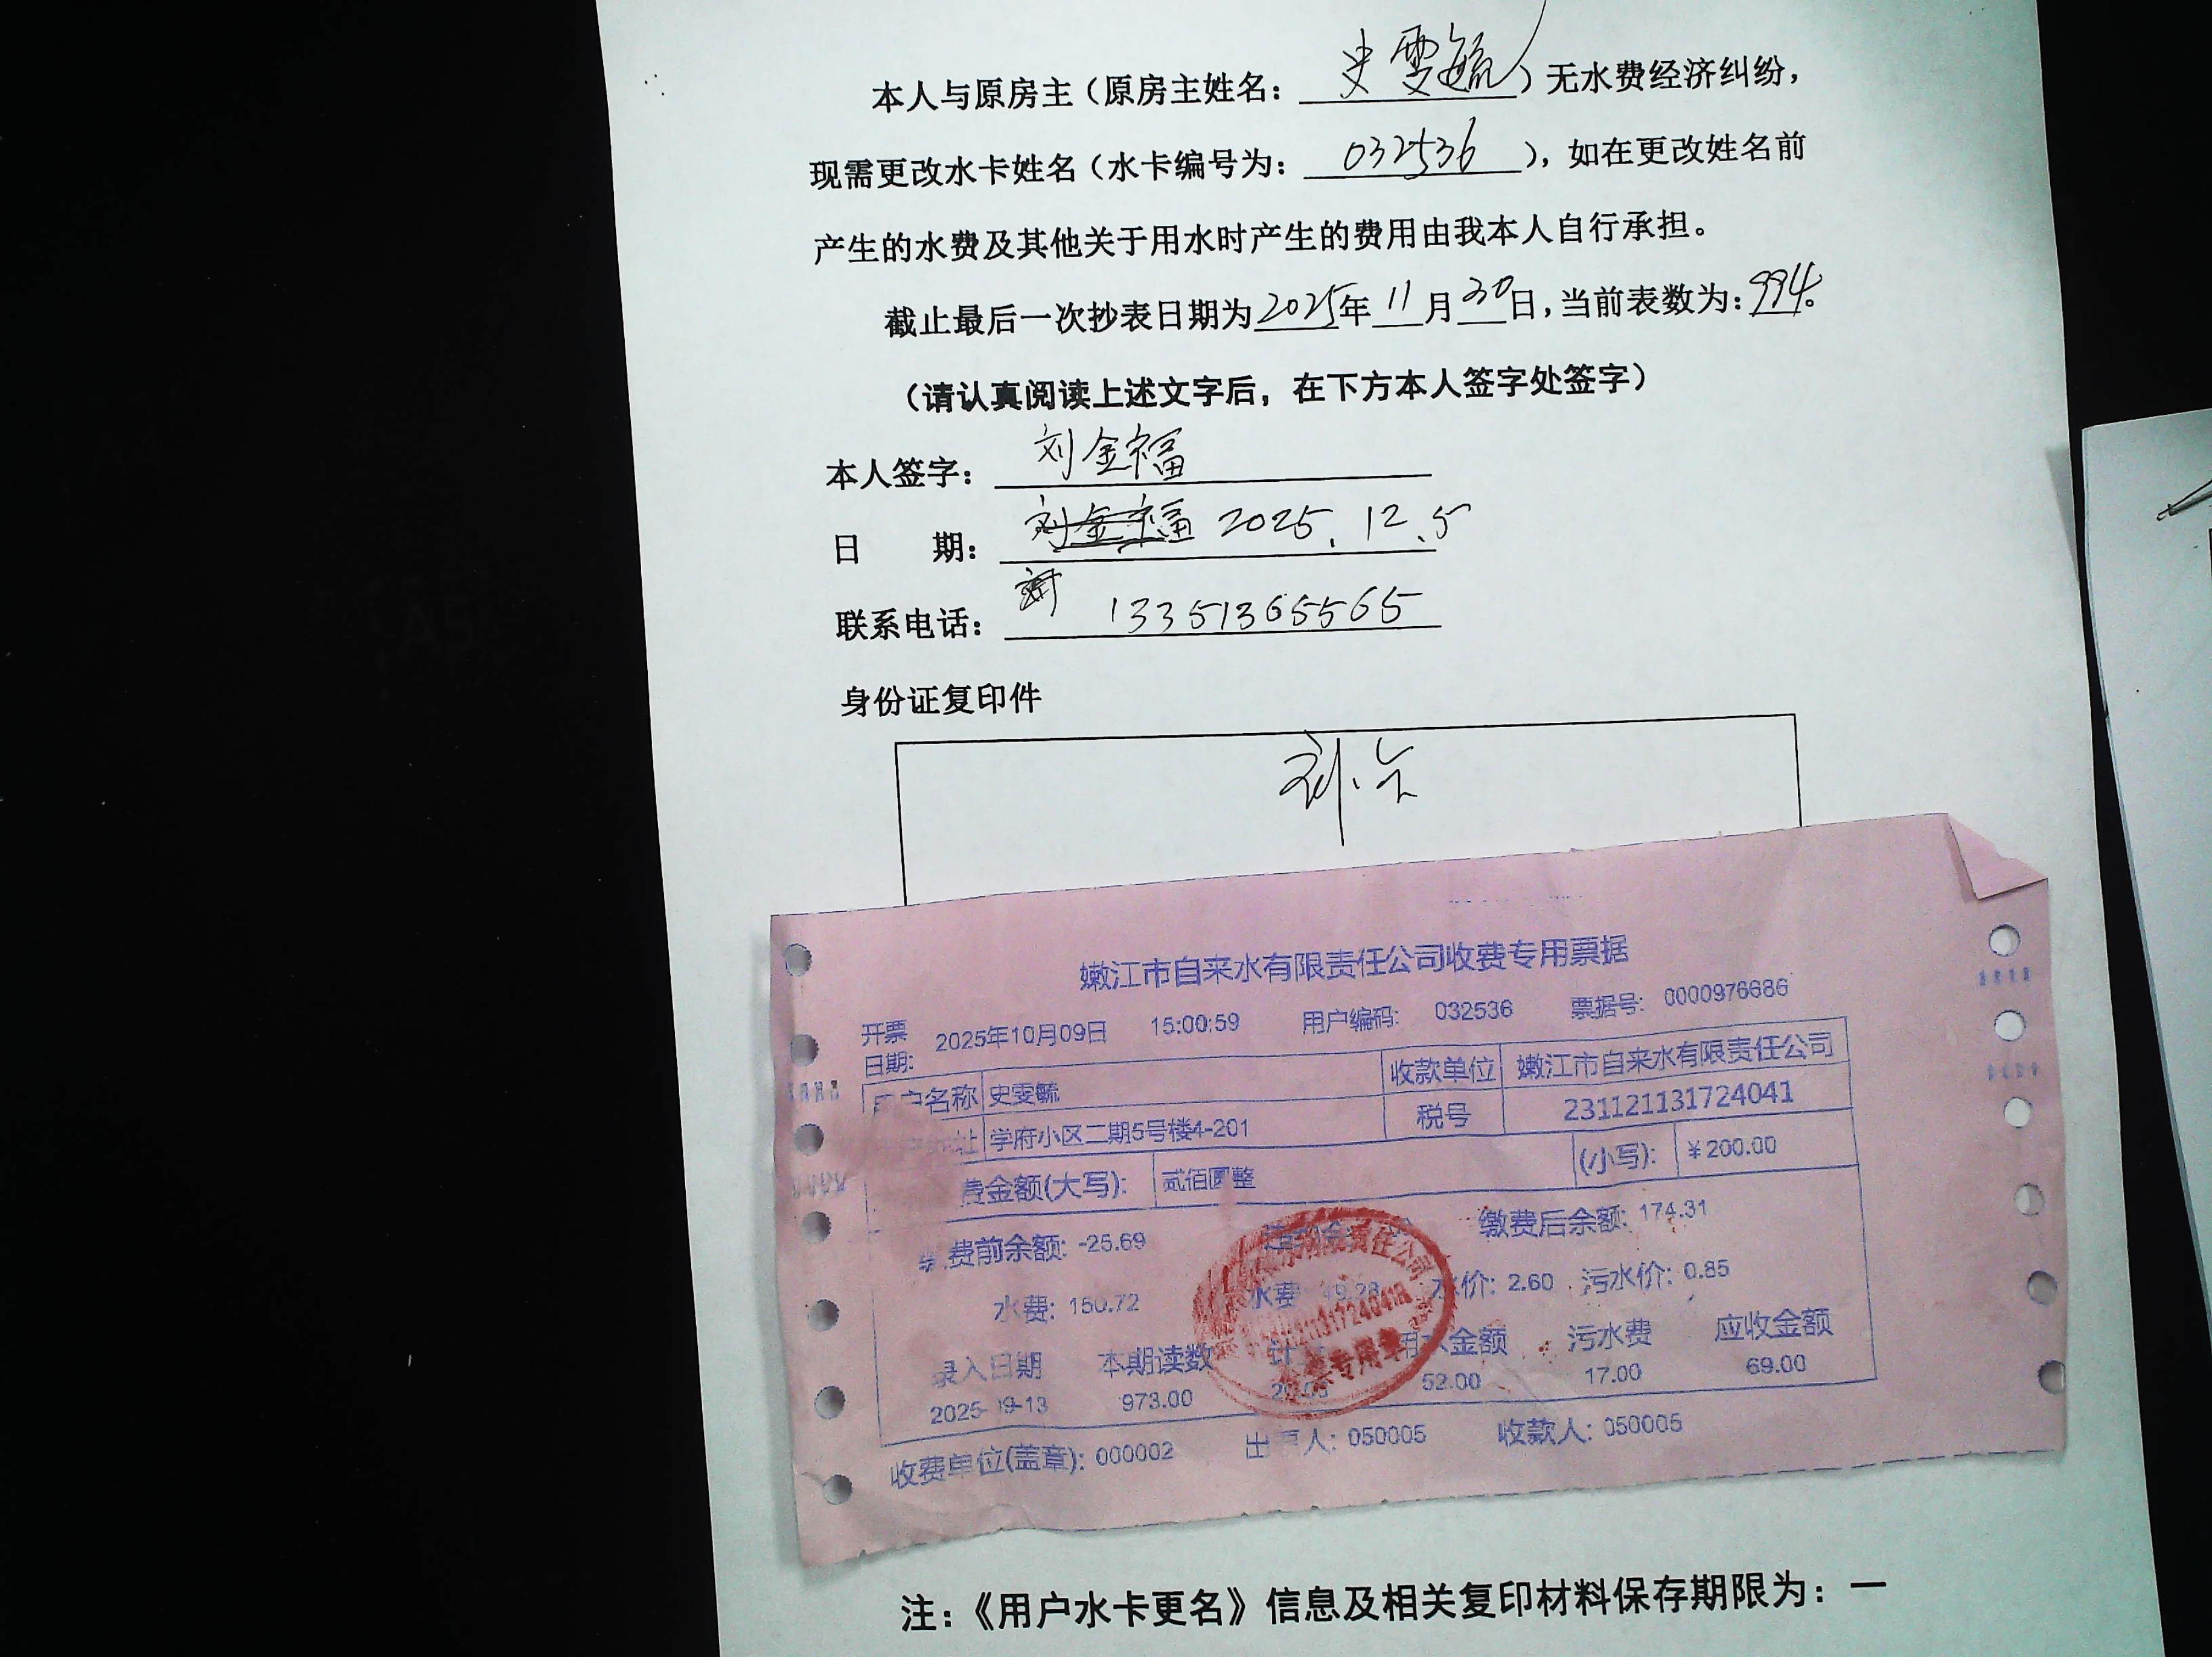 本人与原房主（原房主姓名：史雯毓）无水费经济纠纷，
现需更改水卡姓名（水卡编号为：032536），如在更改姓名前
产生的水费及其他关于用水时产生的费用由我本人自行承担。
截止最后一次抄表日期为2025年11月30日，当前表数为：994。
（请认真阅读上述文字后，在下方本人签字处签字）
本人签字：刘金福
日 期：刘金福 2025.12.5
联系电话：13351365565
身份证复印件
刘金
嫩江市自来水有限责任公司收费专用票据
开票日期： 2025年10月09日 15:00:59 用户编码: 032536 票据号: 0000976686
户名称 史雯毓 收款单位 嫩江市自来水有限责任公司
址 学府小区二期5号楼4-201 税号 231121131724041
费金额(大写): 贰佰圆整 (小写): ¥200.00
费前余额: -25.69 缴费后余额: 174.31
水费: 150.72 水费 9.28 水价: 2.60 污水价: 0.85
录入日期 本期读数 用水金额 污水费 应收金额
2025-09-13 973.00 52.00 17.00 69.00
收费单位(盖章): 000002 出票人: 050005 收款人: 050005
注：《用户水卡更名》信息及相关复印材料保存期限为：一